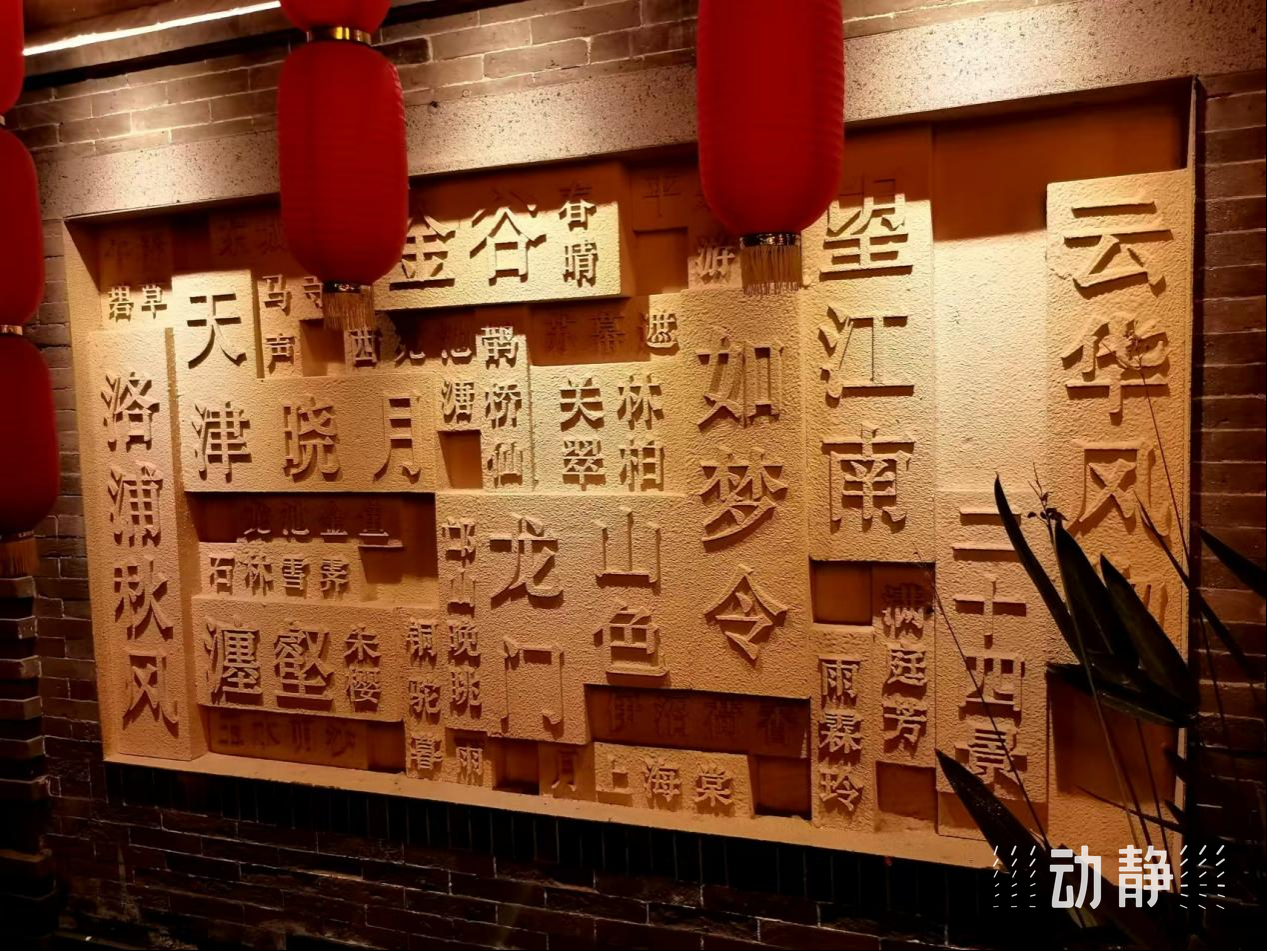 云华风
望江南
二十四景
如梦令
满庭芳
雨霖玲
金谷
春晴
平
游
遮
天津晓月
洛浦秋风
马
声
西
鹊桥仙
塘
关林翠柏
龙门山色
邙山晚眺
铜驼暮雨
石林雪霁
瀍壑朱樱
月上海棠
碧草
动静